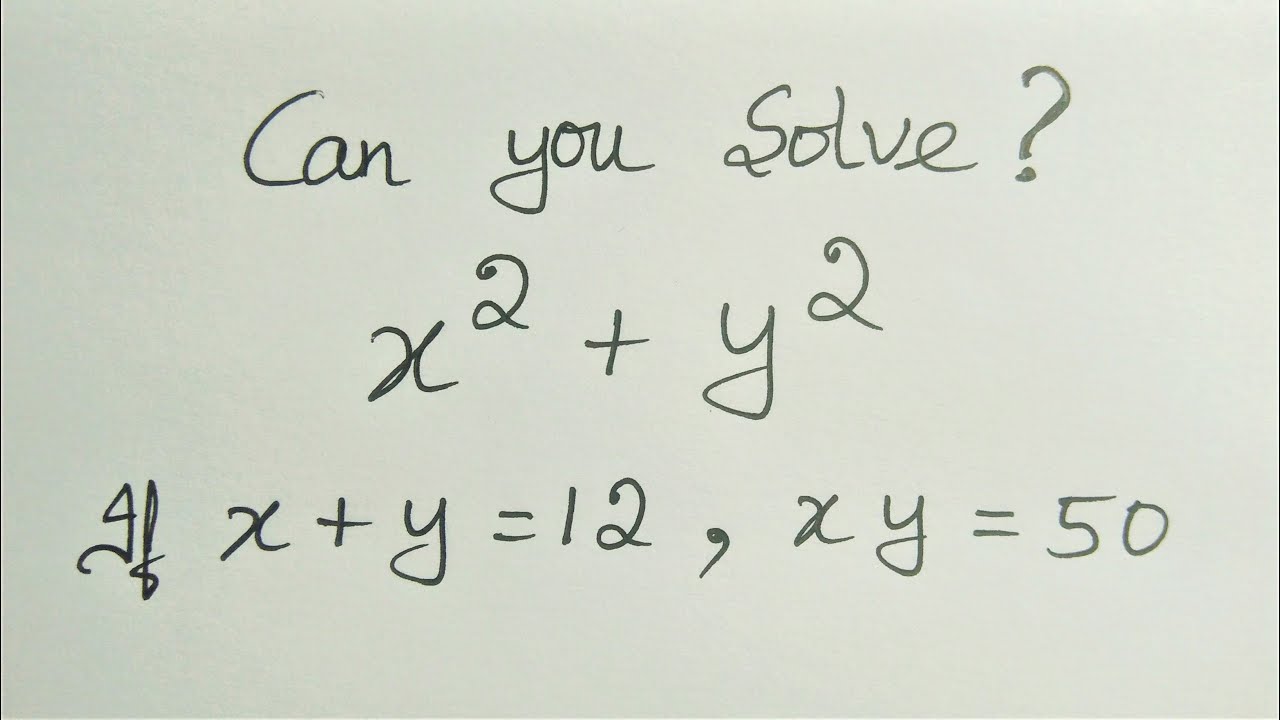 Can you Solve?
x² + y²
If x + y = 12 , x y = 50